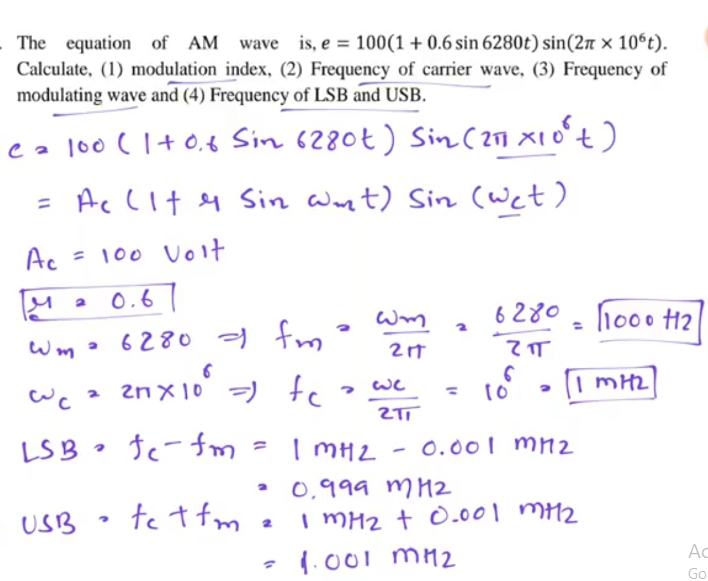 The equation of AM wave is, e = 100(1 + 0.6 sin 6280t) sin(2π × 10⁶t).
Calculate, (1) modulation index, (2) Frequency of carrier wave, (3) Frequency of
modulating wave and (4) Frequency of LSB and USB.
e = 100 (1+0.6 Sin 6280t) Sin (2π ×10⁶t)
= Ac (1+ μ Sin ωmt) Sin (ωct)
Ac = 100 Volt
μ = 0.6
ωm = 6280 => fm = ωm/2π = 6280/2π = 1000 Hz
ωc = 2π×10⁶ => fc = ωc/2π = 10⁶ = 1 MHz
LSB = fc-fm = 1 MHz - 0.001 MHz
= 0.999 MHz
USB = fc+fm = 1 MHz + 0.001 MHz
= 1.001 MHz
Ac
Go